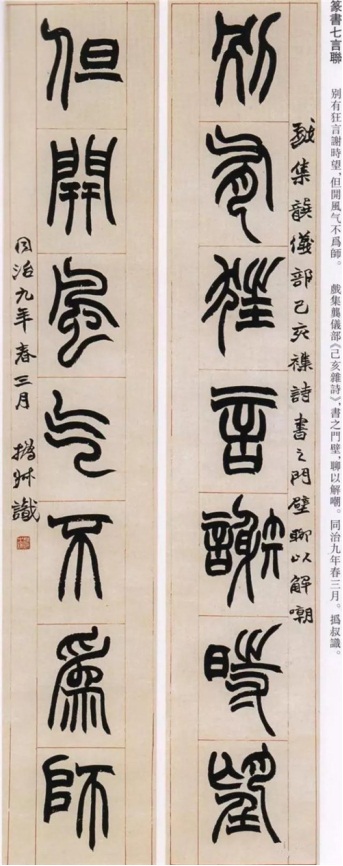 篆書七言聯　別有狂言謝時望，但開風气不爲師。　戲集龔儀部《己亥雜詩》，書之門壁，聊以解嘲。同治九年春三月。撝叔識。
戲集龔儀部己亥襍詩書之門壁聊以解嘲
別有狂言謝時望
但開風气不爲師
同治九年春三月　撝叔識